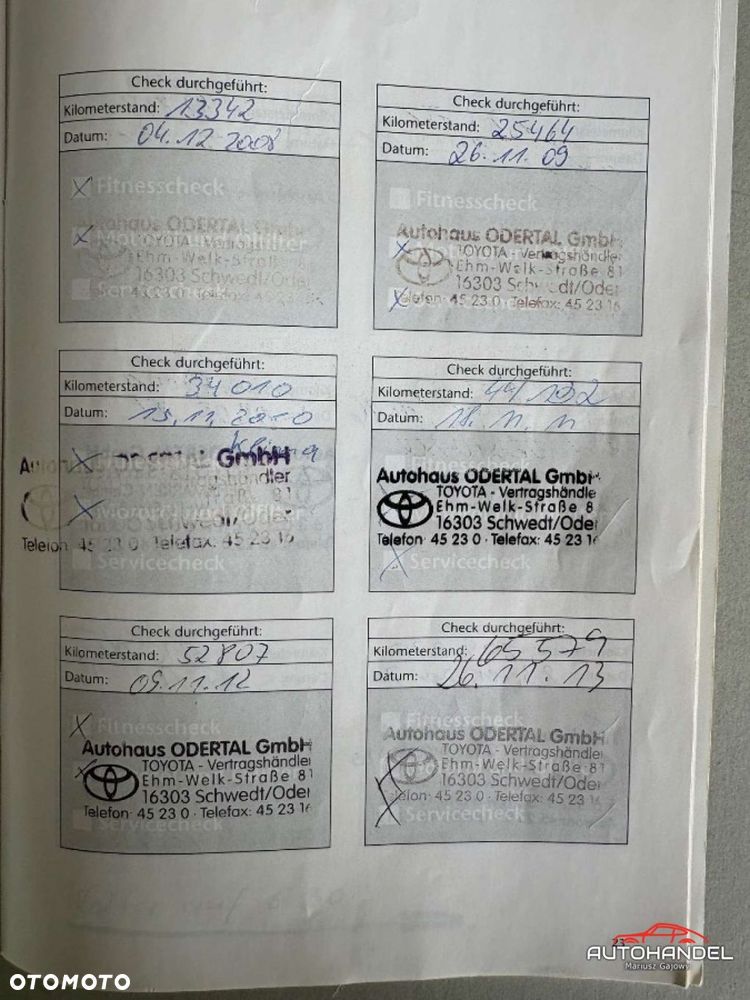 Check durchgeführt:
Kilometerstand: 13342
Datum: 04.12.2008
Fitnesscheck
Autohaus ODERTAL GmbH
TOYOTA - Vertragshändler
Ehm-Welk-Straße 81
16303 Schwedt/Oder
45 23 0 Telefax: 45 23
Servicecheck
Check durchgeführt:
Kilometerstand: 25464
Datum: 26.11.09
Fitnesscheck
Autohaus ODERTAL GmbH
TOYOTA - Vertragshändler
Ehm-Welk-Straße 81
16303 Schwedt/Oder
Telefon: 45 23 0 Telefax: 45 23 16
Check durchgeführt:
Kilometerstand: 34010
Datum: 15.11.2010
Klima
GmbH
Vertragshändler
81
16303 Schwedt/Oder
Telefon: 45 23 0 - Telefax: 45 23 16
Servicecheck
Check durchgeführt:
Kilometerstand: 44192
Datum: 18.11.11
Autohaus ODERTAL GmbH
TOYOTA - Vertragshändle
Ehm-Welk-Straße 8
16303 Schwedt/Oder
Telefon: 45 23 0 · Telefax: 45 23 16
Servicecheck
Check durchgeführt:
Kilometerstand: 52807
Datum: 05.11.12
Fitnesscheck
Autohaus ODERTAL GmbH
TOYOTA - Vertragshändler
Ehm-Welk-Straße 81
16303 Schwedt/Oder
Telefon: 45 23 0 · Telefax: 45 23 16
Servicecheck
Check durchgeführt:
Kilometerstand: 65579
Datum: 26.11.13
Fitnesscheck
Autohaus ODERTAL GmbH
TOYOTA - Vertragshändler
Ehm-Welk-Straße 81
16303 Schwedt/Oder
Telefon: 45 23 0 · Telefax: 45 23 16
Servicecheck
23
AUTOHANDEL
Mariusz Gajowy
OTOMOTO